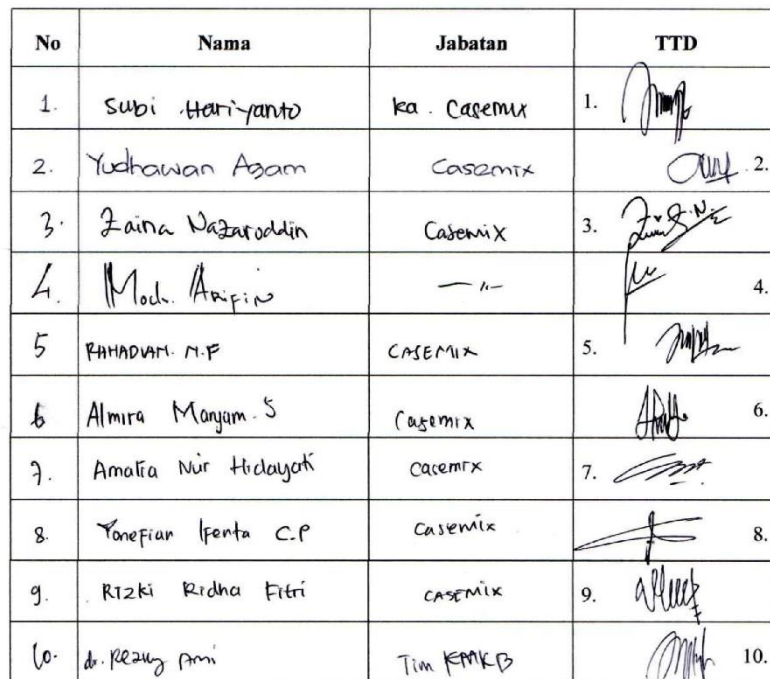 No Nama Jabatan TTD
1. Subi Hariyanto ka. Casemix 1.
2. Yudhawan Agam Casemix 2.
3. Zaina Nazaroddin Casemix 3.
4. Moch. Arifin — 〃 — 4.
5 RAHADIAN. N.F CASEMIX 5.
6 Almira Maryam. S Casemix 6.
7. Amalia Nur Hidayati Casemix 7.
8. Yonefian Ifenta C.P Casemix 8.
9. Rizki Ridha Fitri CASEMIX 9.
10. dr. Tim 10.